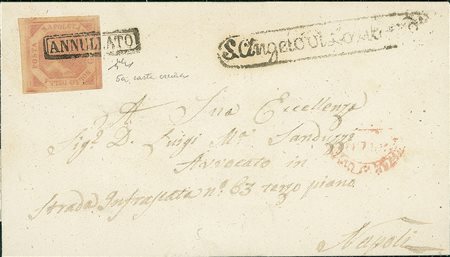 POSTA NAPOLETANA
ANNULLATO
S. Angelo de' Lombardi
5a, carta crema
A Sua Eccellenza
Sigr. D. Luigi Ma. Sanduzzi
Avvocato in
Strada Infrascata no. 63 terzo piano
Napoli